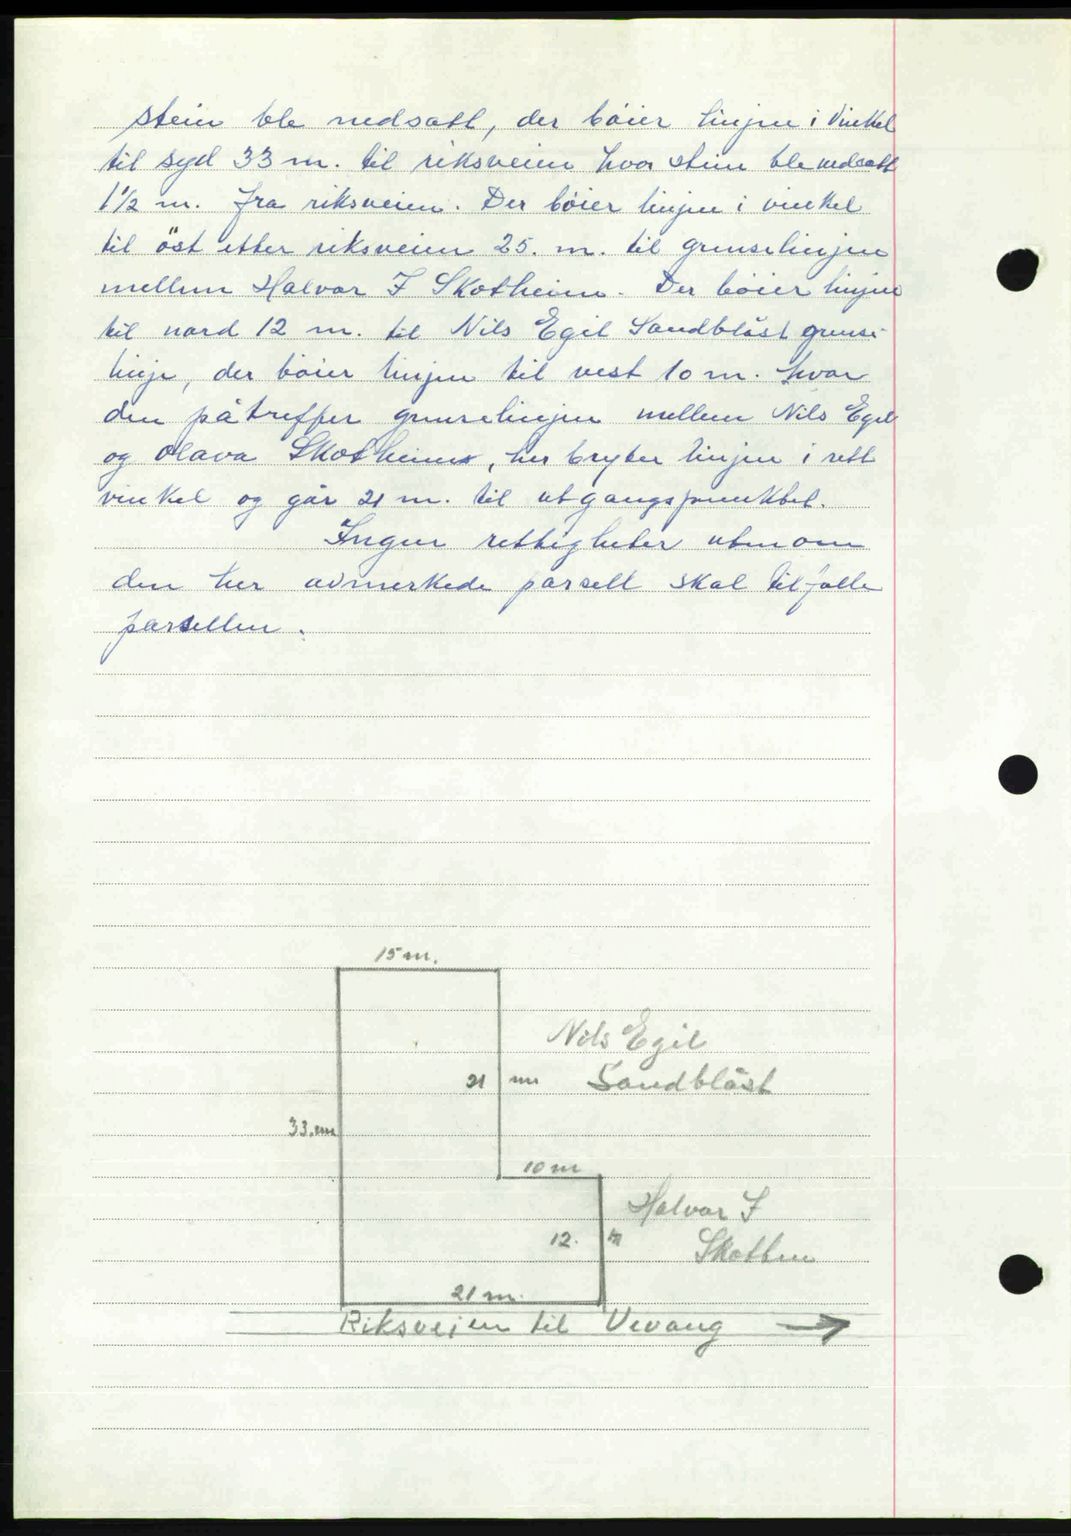 stein ble nedsatt, der bøier linjen i vinkel
til syd 33 m. til riksveien hvor stein ble nedsatt
1½ m. fra riksveien. Der bøier linjen i vinkel
til öst etter riksveien 25. m. til grenselinjen
mellem Halvar J Skotheim. Der bøier linjen
til nord 12 m. til Nils Egil Sandblåst grense
linje, der bøier linjen til vest 10 m. hvor
den påtreffer grenselinjen mellem Nils Egil
og Olava Skotheim, her bryter linjen i rett
vinkel og går 21 m. til utgangspunktet.
Ingen rettigheter utenom
den her avmerkede parsell skal tilfalle
parsellen.
15 m.
Nils Egil
Sandblåst
21 m
33. m
10 m
Halvar J
12. m
21 m.
Riksveien til Vevang